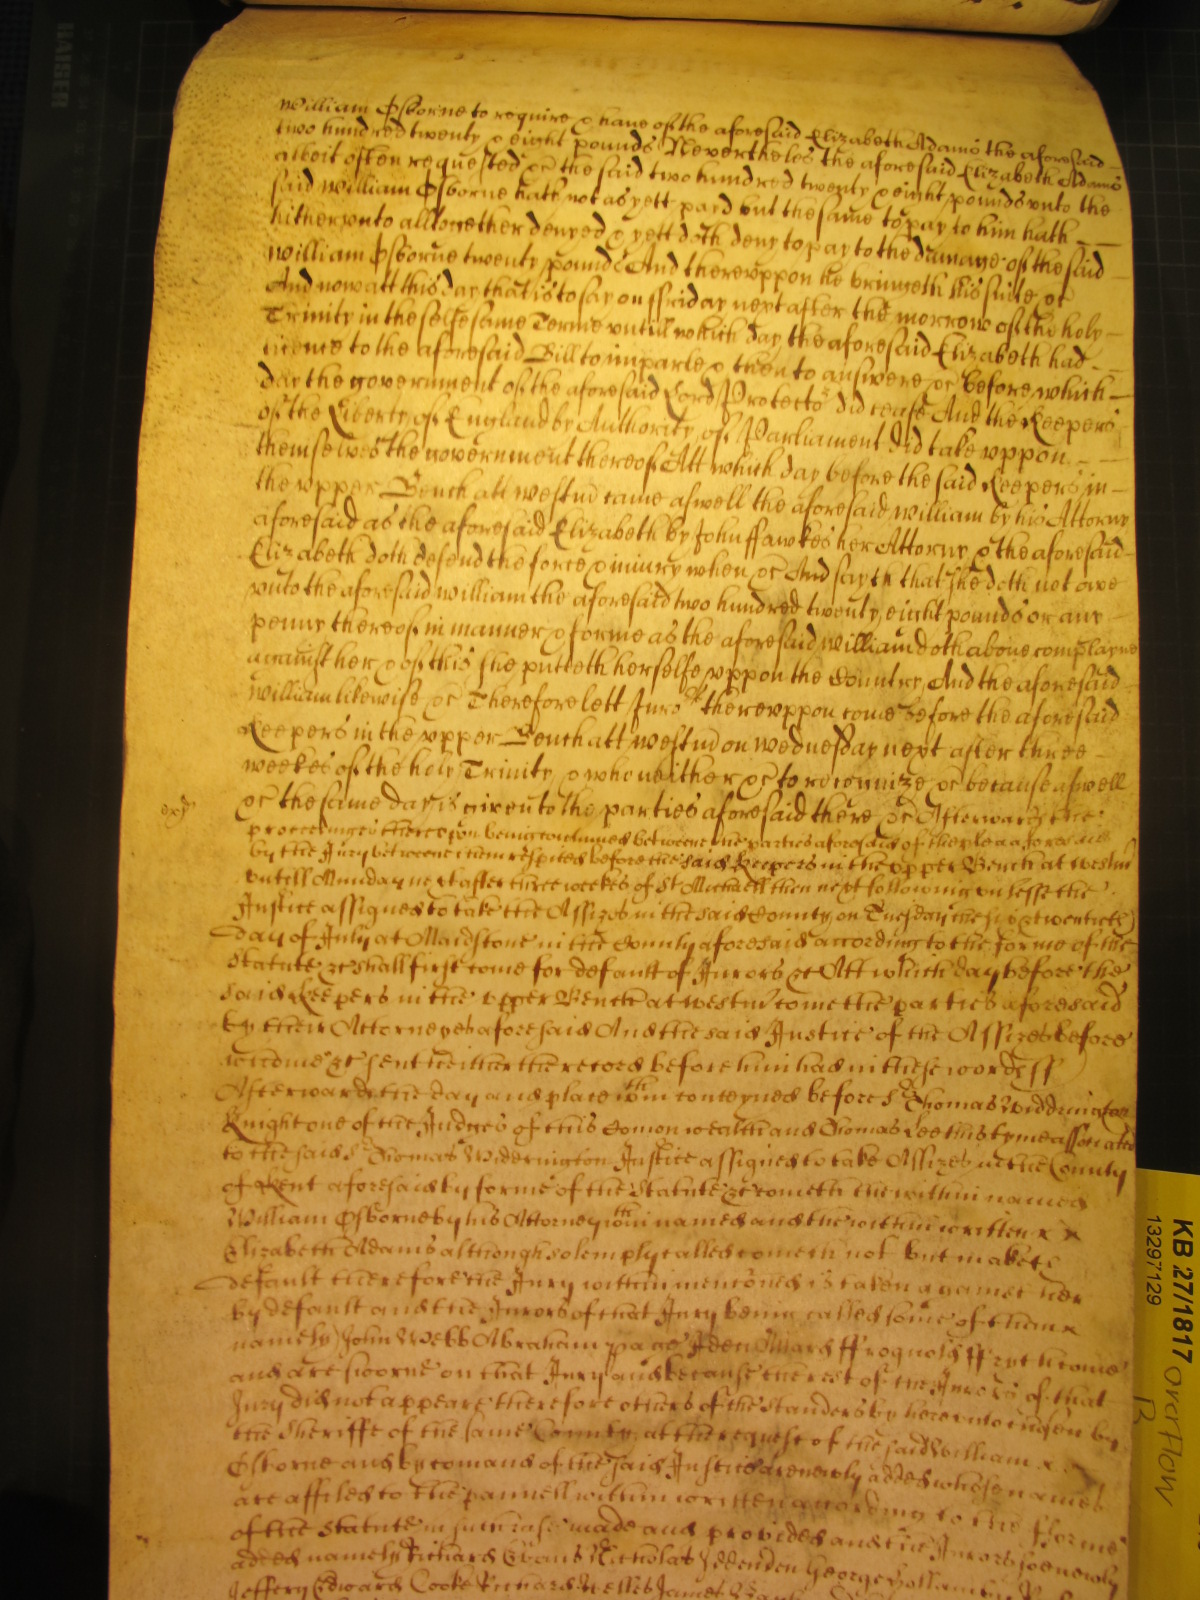 HAISER
William Osborne to require & have of the aforesaid Elizabeth Adams the aforesaid
two hundred twenty & eight pounds Nevertheles the aforesaid Elizabeth Adams
albeit often requested &c the said two hundred twenty & eight pounds unto the
said William Osborne hath not as yett payd but the same to pay to him hath
hitherunto alltogether denyed & yett doth deny to pay to the damage of the said
William Osborne twenty pounds And thereuppon he bringeth his suite &c
And now att this day that is to say on ffriday next after the morrow of the holy
Trinity in the selfe same Terme untill which day the aforesaid Elizabeth had
licence to the aforesaid Bill to imparle & then to answere &c before which
day the government of the aforesaid Lord Protector did cease And the Keepers
of the Liberty of England by Authority of Parliament did take uppon
themselves the government thereof Att which day before the said Keepers in
the upper Bench att Westm came aswell the aforesaid William by his Attorny
aforesaid as the aforesaid Elizabeth by John ffawkes her Attorny & the aforesaid
Elizabeth doth defend the force & iniury when &c And sayth that she doth not owe
unto the aforesaid William the aforesaid two hundred twenty eight pounds or any
penny thereof in manner & forme as the aforesaid William doth above complayne
against her & of this she putteth herselfe uppon the Country And the aforesaid
William likewise &c Therefore lett Jury thereuppon come before the aforesaid
Keepers in the upper Bench att Westm on Wednesday next after three
weekes of the holy Trinity & who neither &c to recognize &c because aswell
&c the same day is given to the parties aforesaid there &c Afterwards the
proceedings thereupon being continued betweene the parties aforesaid of the plea aforesaid
by the Jury betweene them respited before the said Keepers in the upper Bench at Westm
untill Munday next after three weekes of St Michaell then next following unlesse the
Justice assigned to take the Assizes in the said County on Tuesday the six & twentieth
day of July at Maidstone in the County aforesaid according to the forme of the
Statute &c shall first come for default of Jurors &c Att which day before the
said Keepers in the upper Bench at Westm come the parties aforesaid
by their Attorneyes aforesaid And the said Justice of the Assizes before
whome &c sent hether the record before him had in these words ss
Afterwards the day and place wthin conteyned before Sr Thomas Widdrington
Knight one of the Judges of this Comon wealth and Thomas Lee this tyme associated
to the said Sr Thomas Widdrington Justice assigned to take Assizes in the County
of Kent aforesaid by forme of the Statute &c cometh the within named
William Osborne by his Attorney wthin named and the within written
Elizabeth Adams although solemply called cometh not but maketh
default therefore the Jury within mentoned is taken against her
by default and the Jurors of that Jury being called some of them
namely John Webb Abraham Page ffrognold come
and are sworne on that Jury and because the rest of the Jurors of that
Jury did not appeare therefore others of the standers by hereunto chosen by
the Sheriffe of the same County at the request of the said William
Osborne and by comand of the said Justice are newly added whose names
are affiled to the pannell within written according to the fforme
of the Statute in such case made and provided and the Jurors soe newly
added namely Richard Evans Nicholas Iddenden George
Jeffery Edward Cooke Richard Welles James
KB 27/1817 overflow
13297129